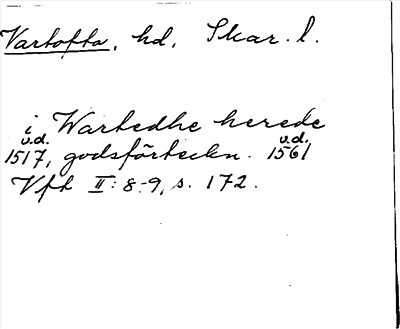 Vartofta, hd, Skar. l.
i Wartedhe herede
u.d. u.d.
1517, godsförteckn. 1561
Vfh II: 8-9, s. 172.